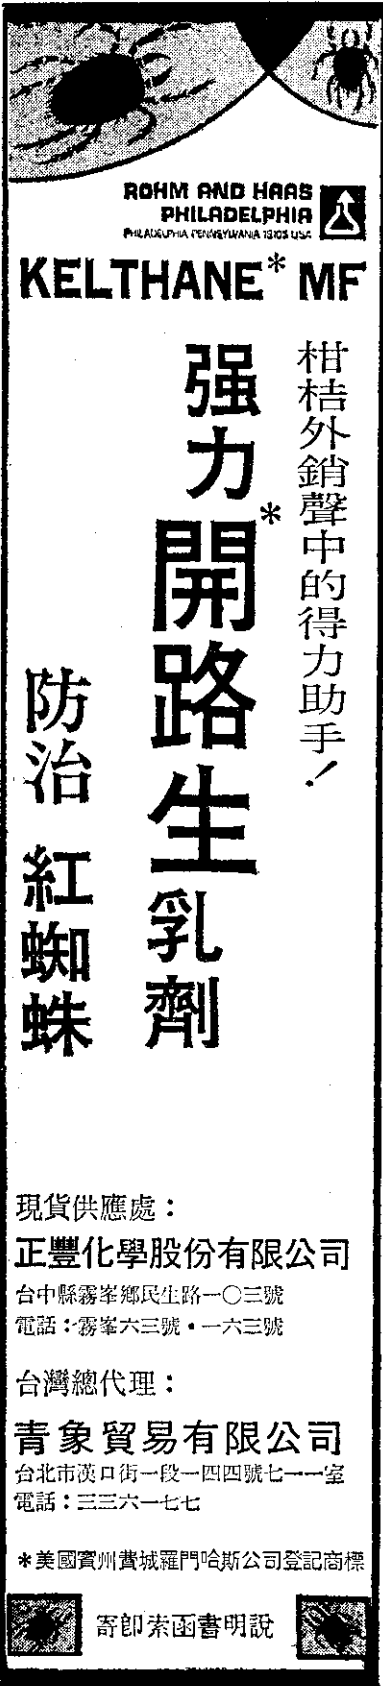 ROHM AND HAAS
PHILADELPHIA
PHILADELPHIA PENNSYLVANIA 19105 USA
KELTHANE* MF
柑桔外銷聲中的得力助手！
强力開路生*乳劑
防治 紅蜘蛛
現貨供應處：
正豐化學股份有限公司
台中縣霧峯鄉民生路一〇三號
電話：霧峯六三號・一六三號
台灣總代理：
青象貿易有限公司
台北市漢口街一段一四四號七一一室
電話：三三六一七七
*美國賓州費城羅門哈斯公司登記商標
寄卽索函書明說